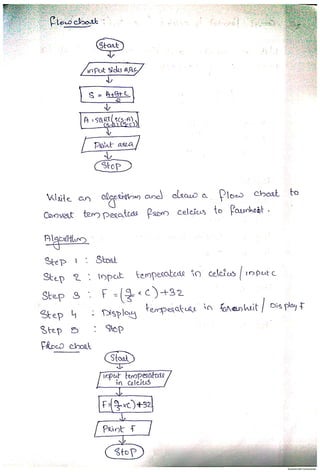 Flowchart :
Start
input sides A,B,C
S = A+B+C
A = SQRT(S(S-A)
(S-B)(S-C))
Print area
Stop
Write an algorithm and draw a flow chart to
convert temperature from celcius to farnheit.
Algorithm
Step 1 : Start
Step 2 : input temperature in celcius / input c
Step 3 : F = (9/5 × C) + 32
Step 4 : Display temperature in farenheit / Display F
Step 5 : Stop
Flow chart
Start
input temperature
in celcius
F = (9/5 × C) + 32
Print F
Stop